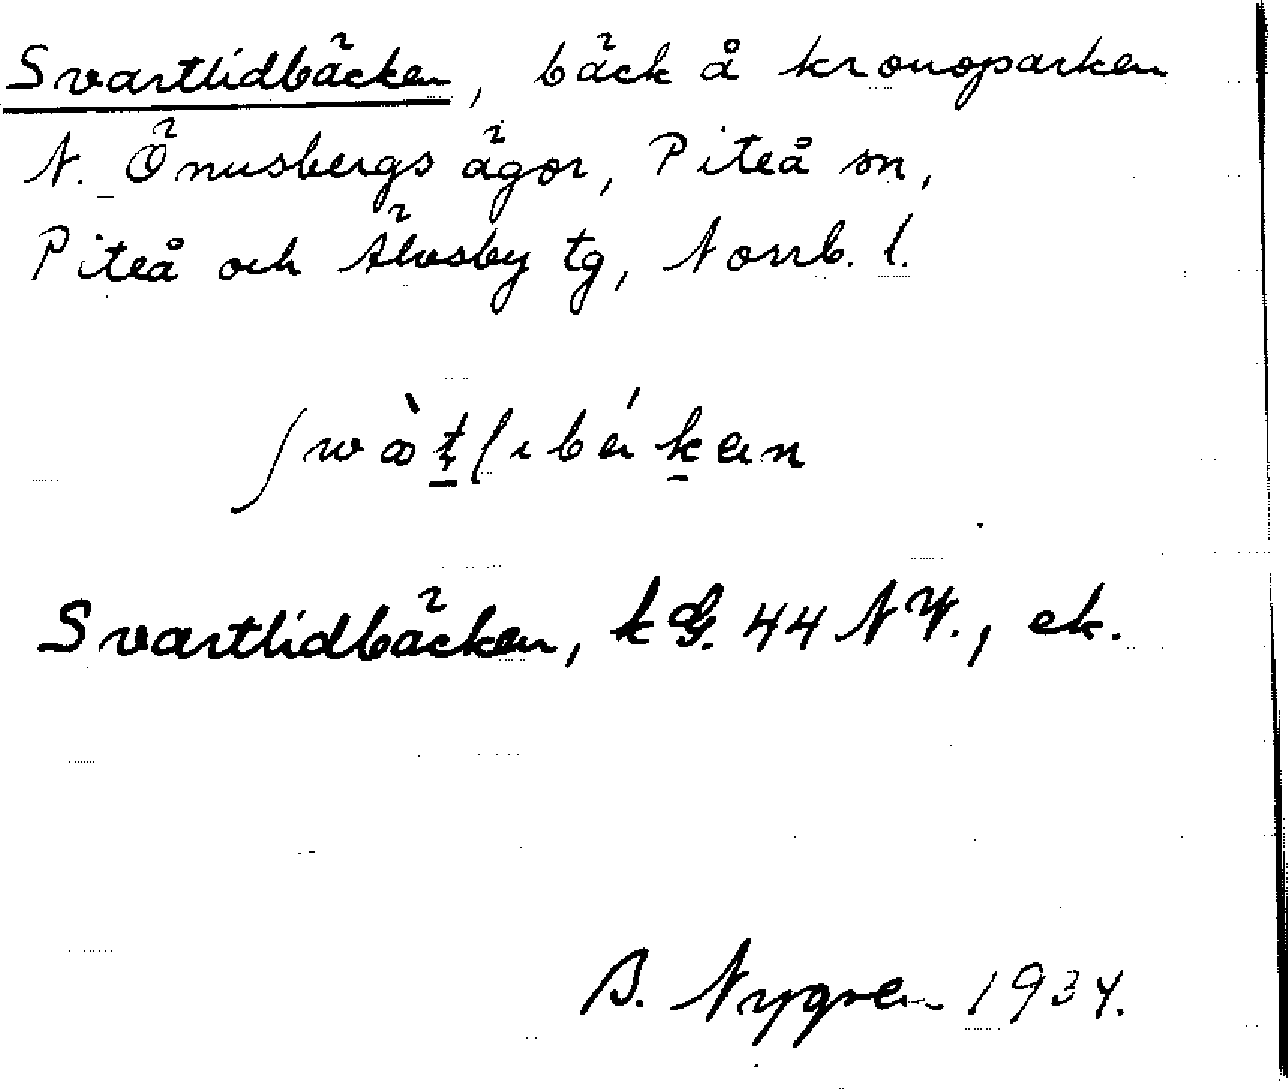 Svartlidbäcken, bäck å kronoparken
N. Önusbergs ägor, Piteå sn,
Piteå och Älvsby tg, Norrb. l.
Svartlidbäcken, kG. 44 NV., ek.
B. Nygren 1934.